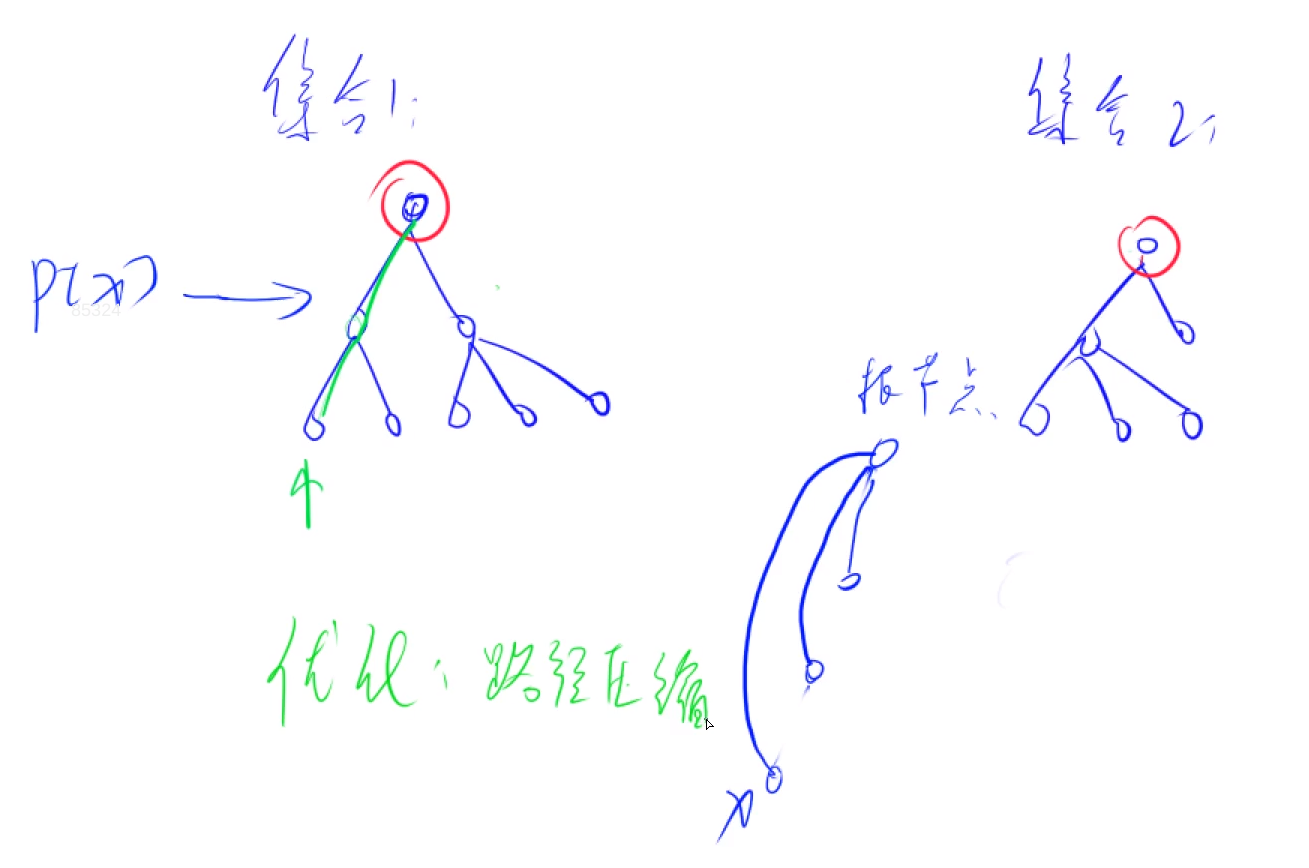 集合1:
集合2:
p[x]
85324
根节点
优化:路径压缩
x